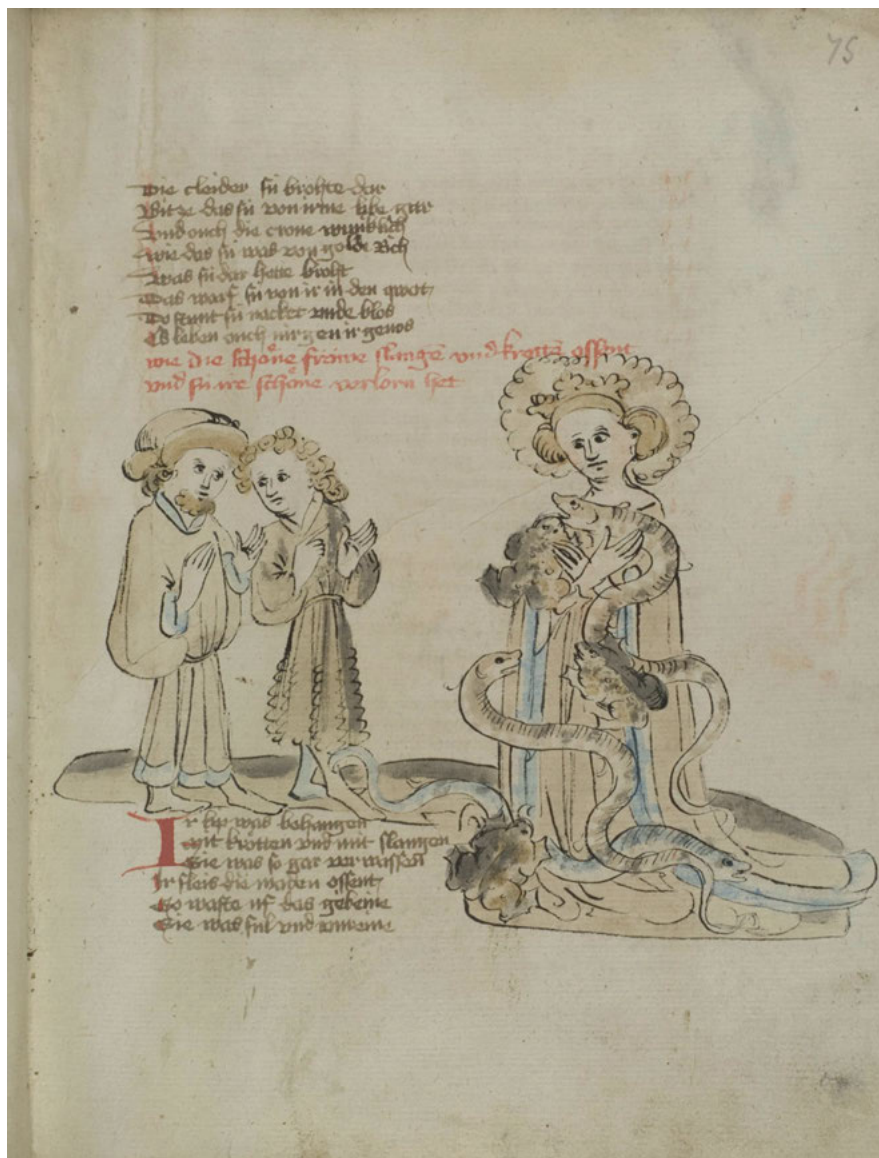 75
Die cleider sü brohte dar
Bitze das sü von irme libe gar
Und ouch die crone wuniklich
Wie das sü was von golde rich
Was sü dar hette broht
Das warf sü von ir in den
Do stunt sü nacket unde blos
Es leben ouch nirgen ir genos
wie die schöne fröwe slangē und krottē ossent
und sü ire schöne verlorn het
Ir lip was behangen
mit krötten und mit slangen
Sie was so gar
Ir fleis die maden ossent
So uf das gebeine
Sie was ful und unreine